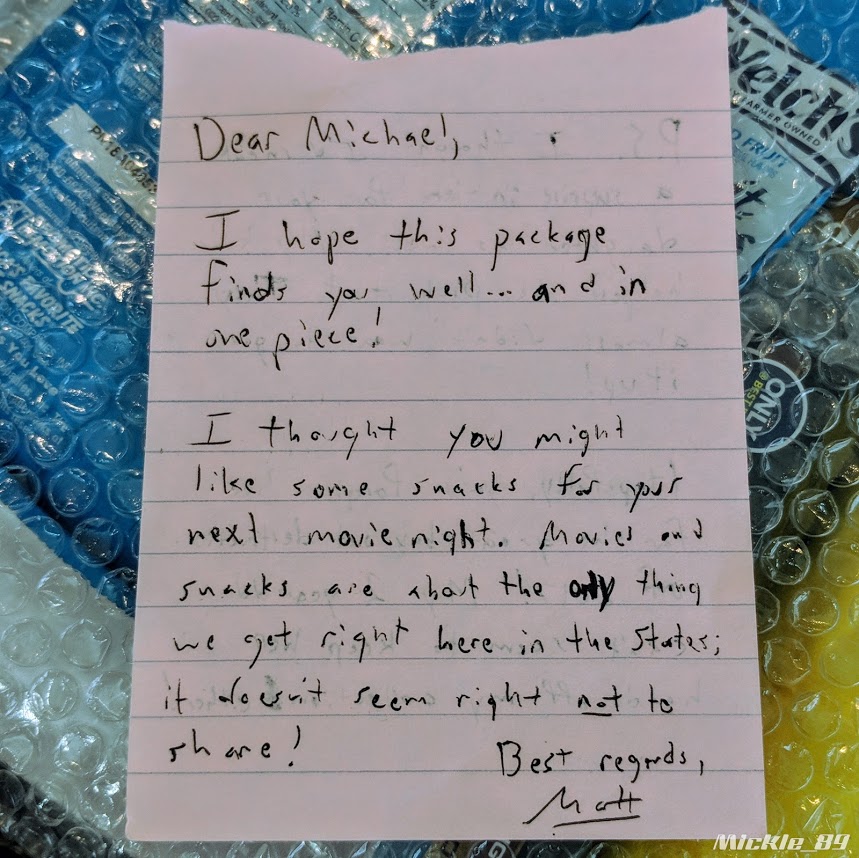 Dear Michael,
I hope this package
finds you well... and in
one piece!
I thought you might
like some snacks for your
next movie night. Movies and
snacks are about the only thing
we get right here in the States;
it doesn't seem right not to
share!
Best regards,
Matt
Welch's
FARMER OWNED
FRUIT
ONLY
Mickle_89